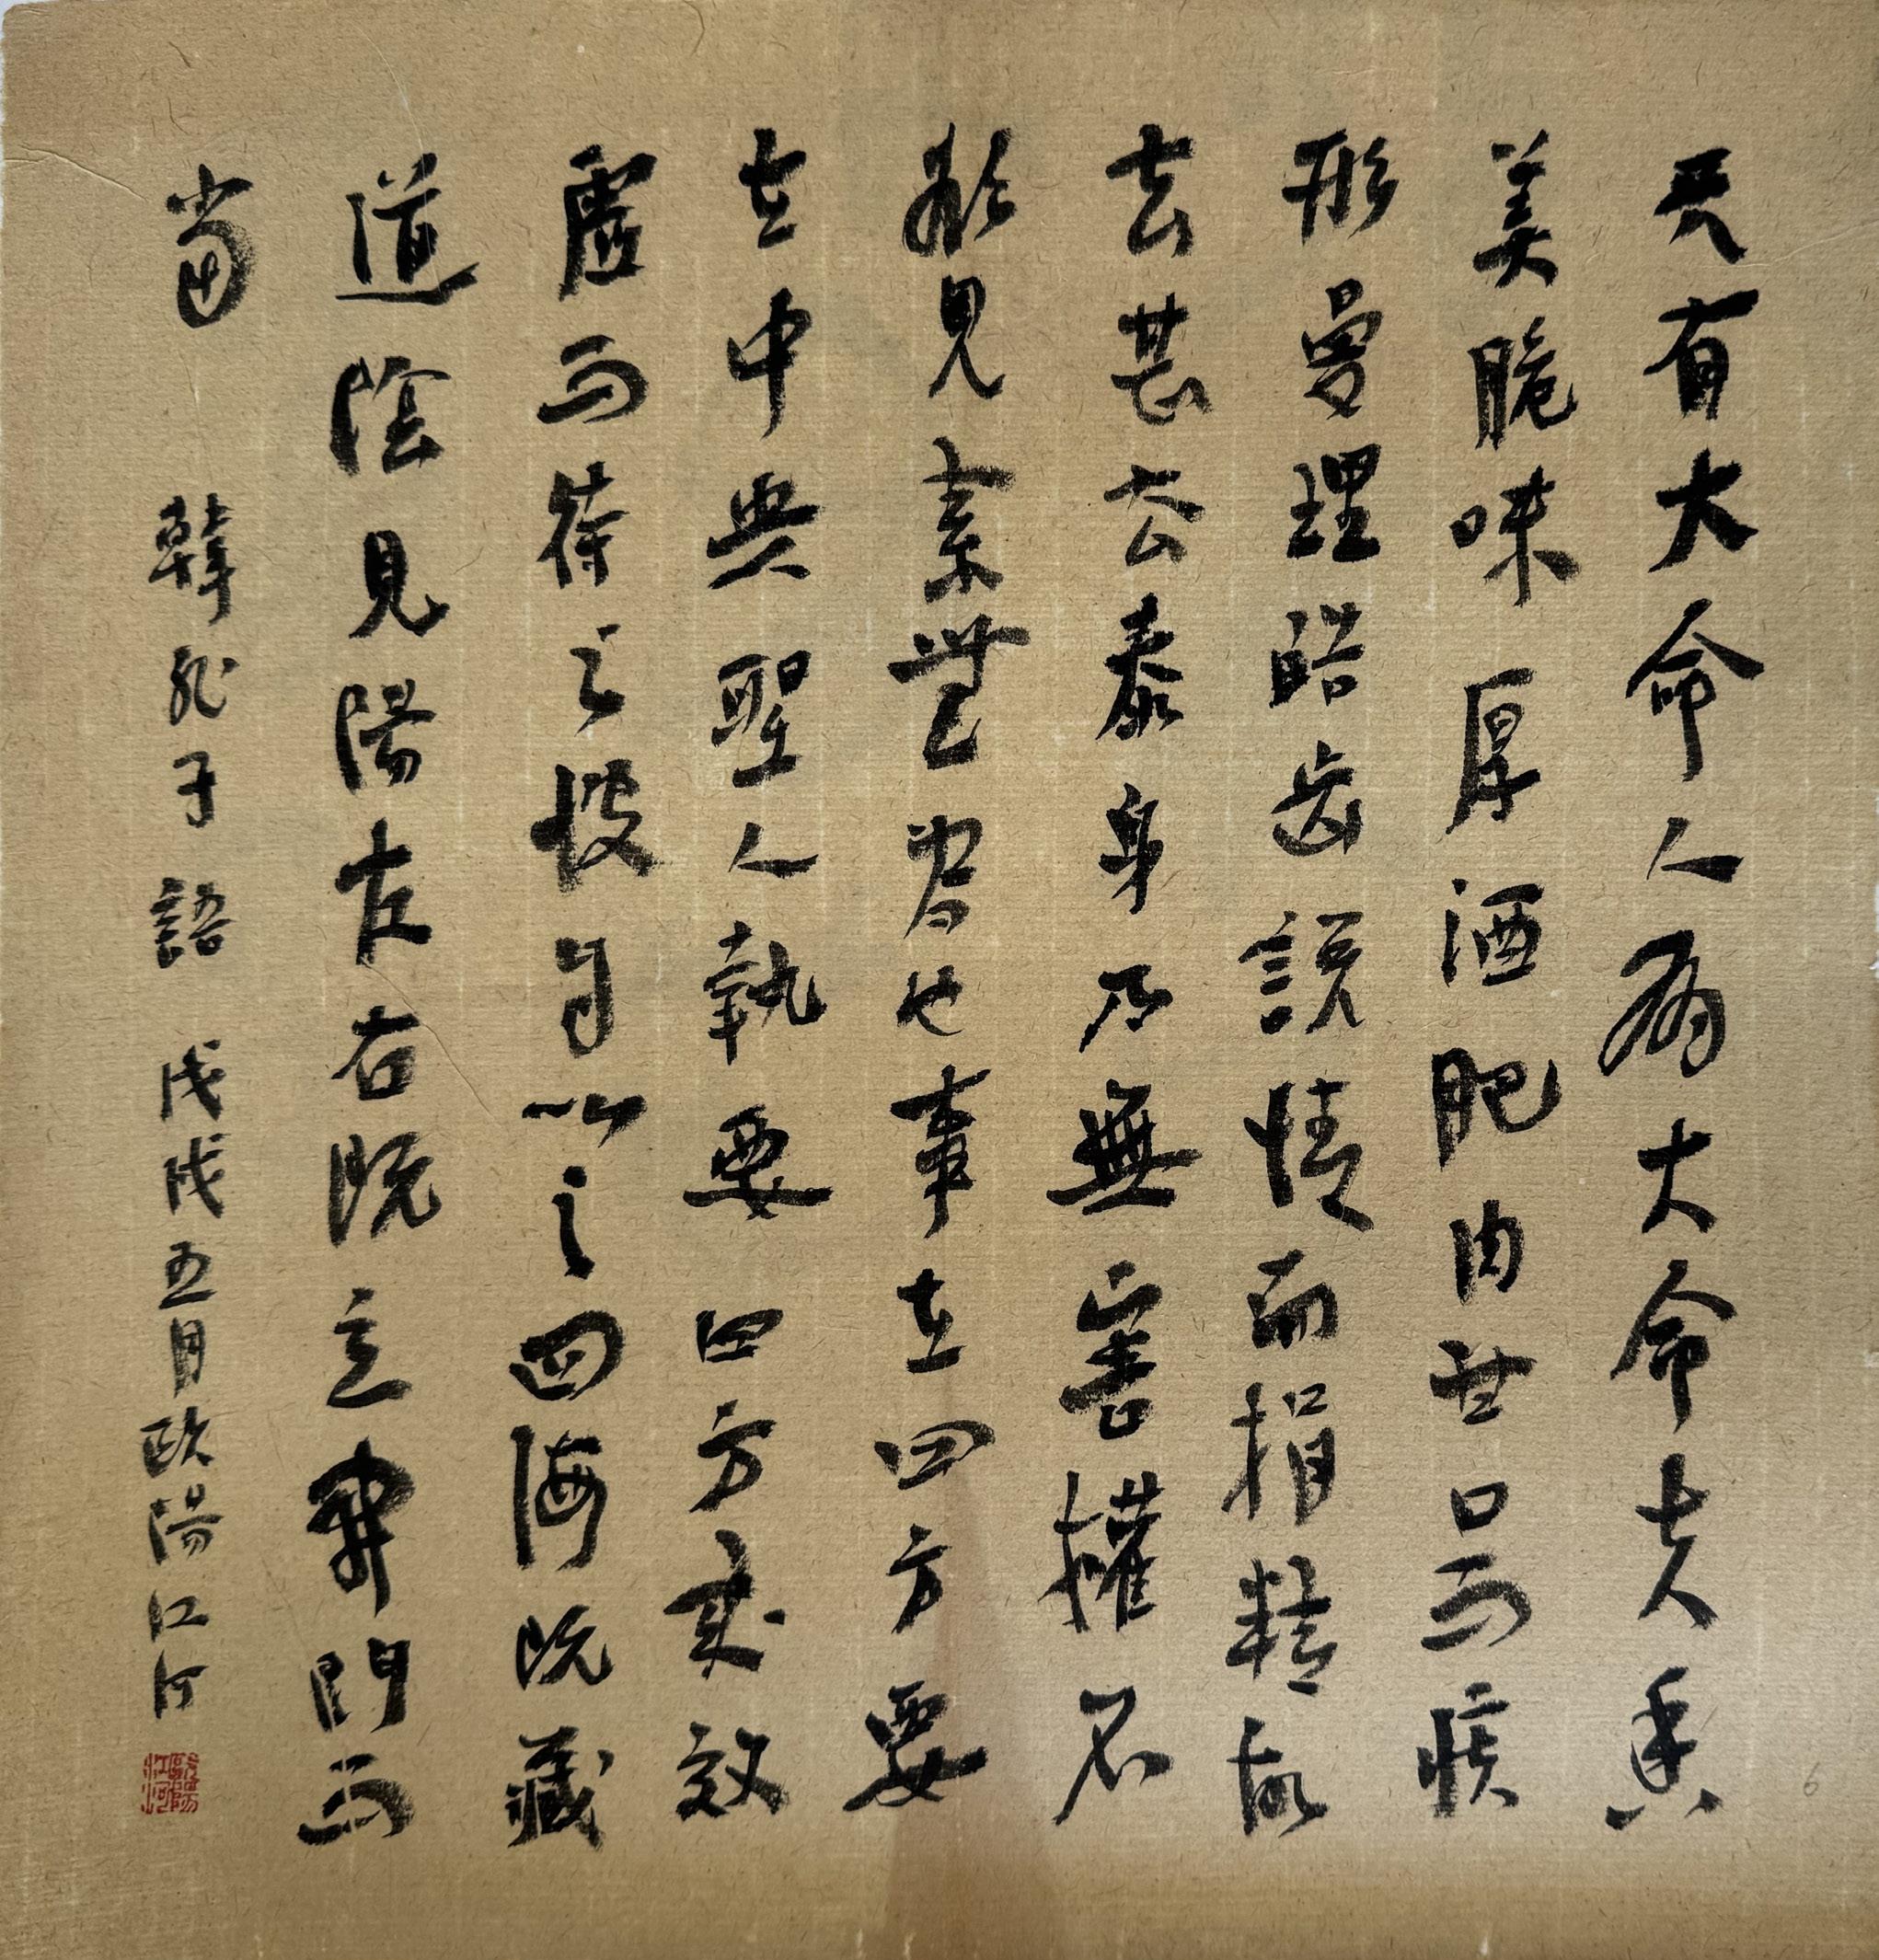 天有大命人有大命夫香
美脆味厚酒肥肉甘口而疾
形曼理皓齿說情而捐精故
去甚去泰身乃無害權不
欲見素無為也事在四方要
在中央聖人執要四方來效
虛而待之彼自以之四海既藏
道陰見陽左右既立開門而
當 韓非子語 戊戌五月欧陽江河
歐陽江河
6